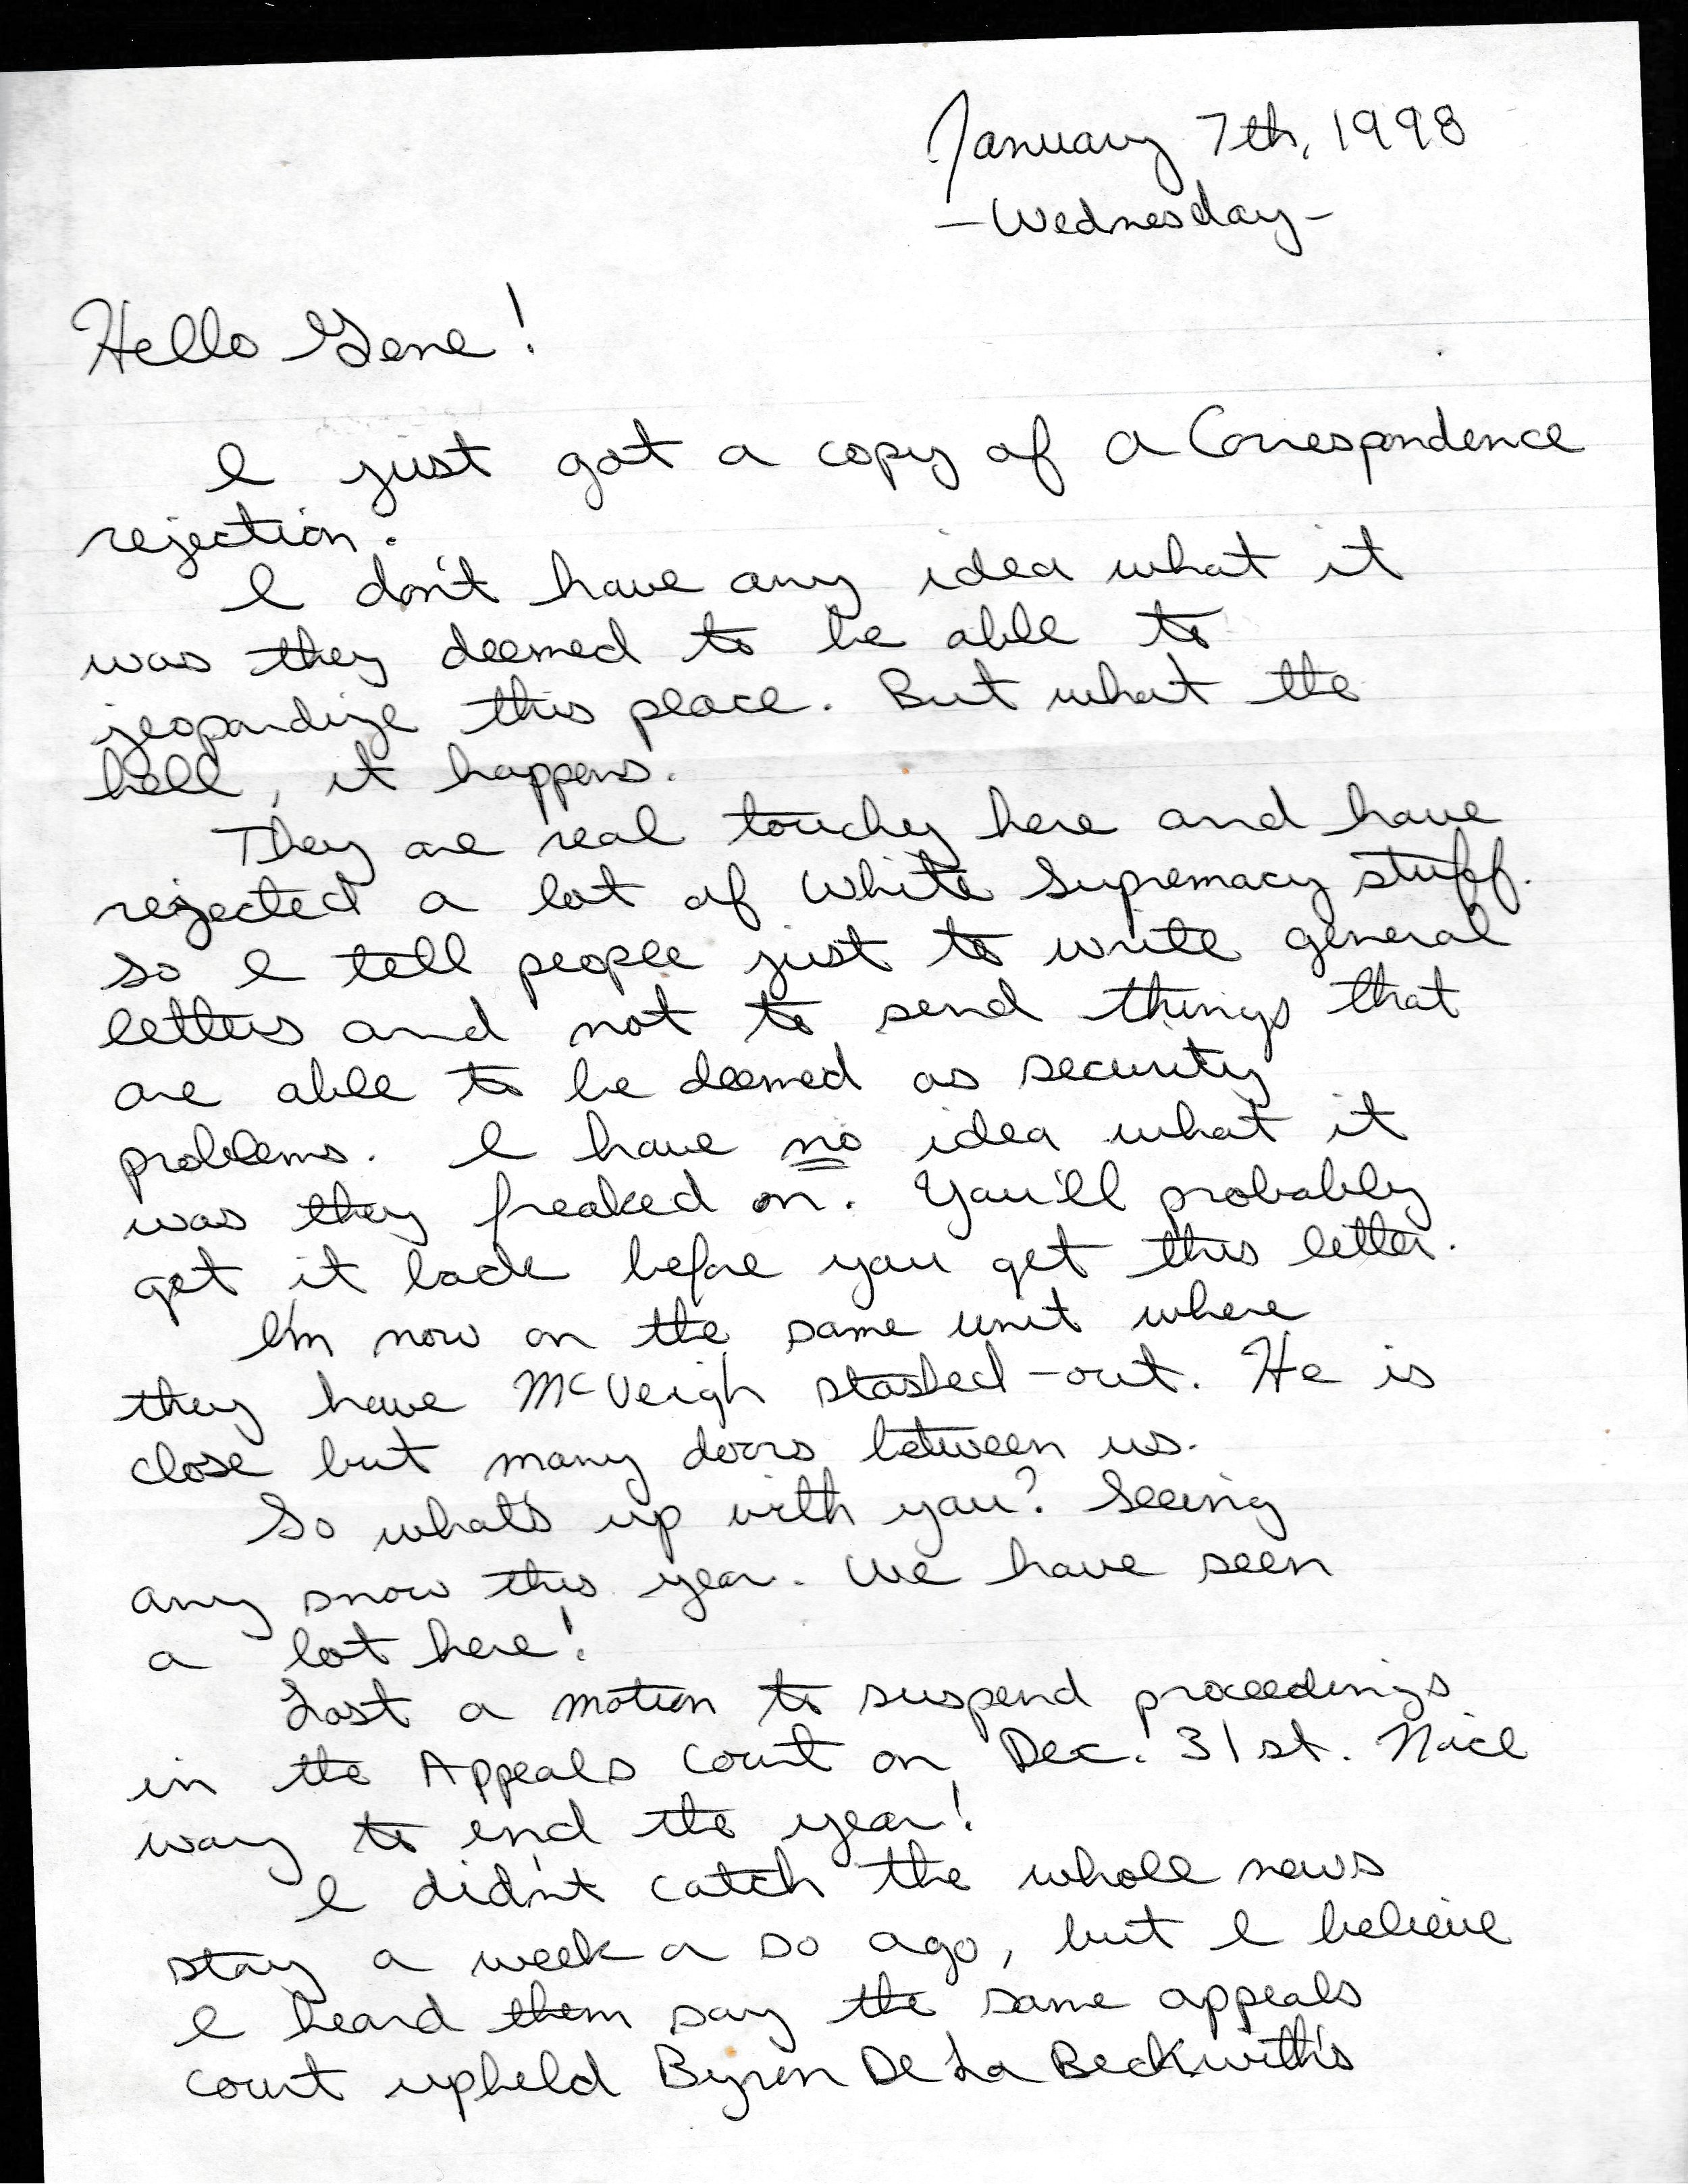 January 7th, 1998
- Wednesday -
Hello Gene!
I just got a copy of a Correspondence
rejection.
I don't have any idea what it
was they deemed to be able to
jeopardize this place. But what the
hell, it happens.
They are real touchy here and have
rejected a lot of White Supremacy stuff.
So I tell people just to write general
letters and not to send things that
are able to be deemed as security
problems. I have no idea what it
was they freaked on. You'll probably
get it back before you get this letter.
I'm now on the same unit where
they have McVeigh stashed-out. He is
close but many doors between us.
So what's up with you? Seeing
any snow this year. We have seen
a lot here!
Lost a motion to suspend proceedings
in the Appeals Court on Dec. 31st. Nice
way to end the year!
I didn't catch the whole news
story a week or so ago, but I believe
I heard them say the same appeals
court upheld Byron De La Beckwith's